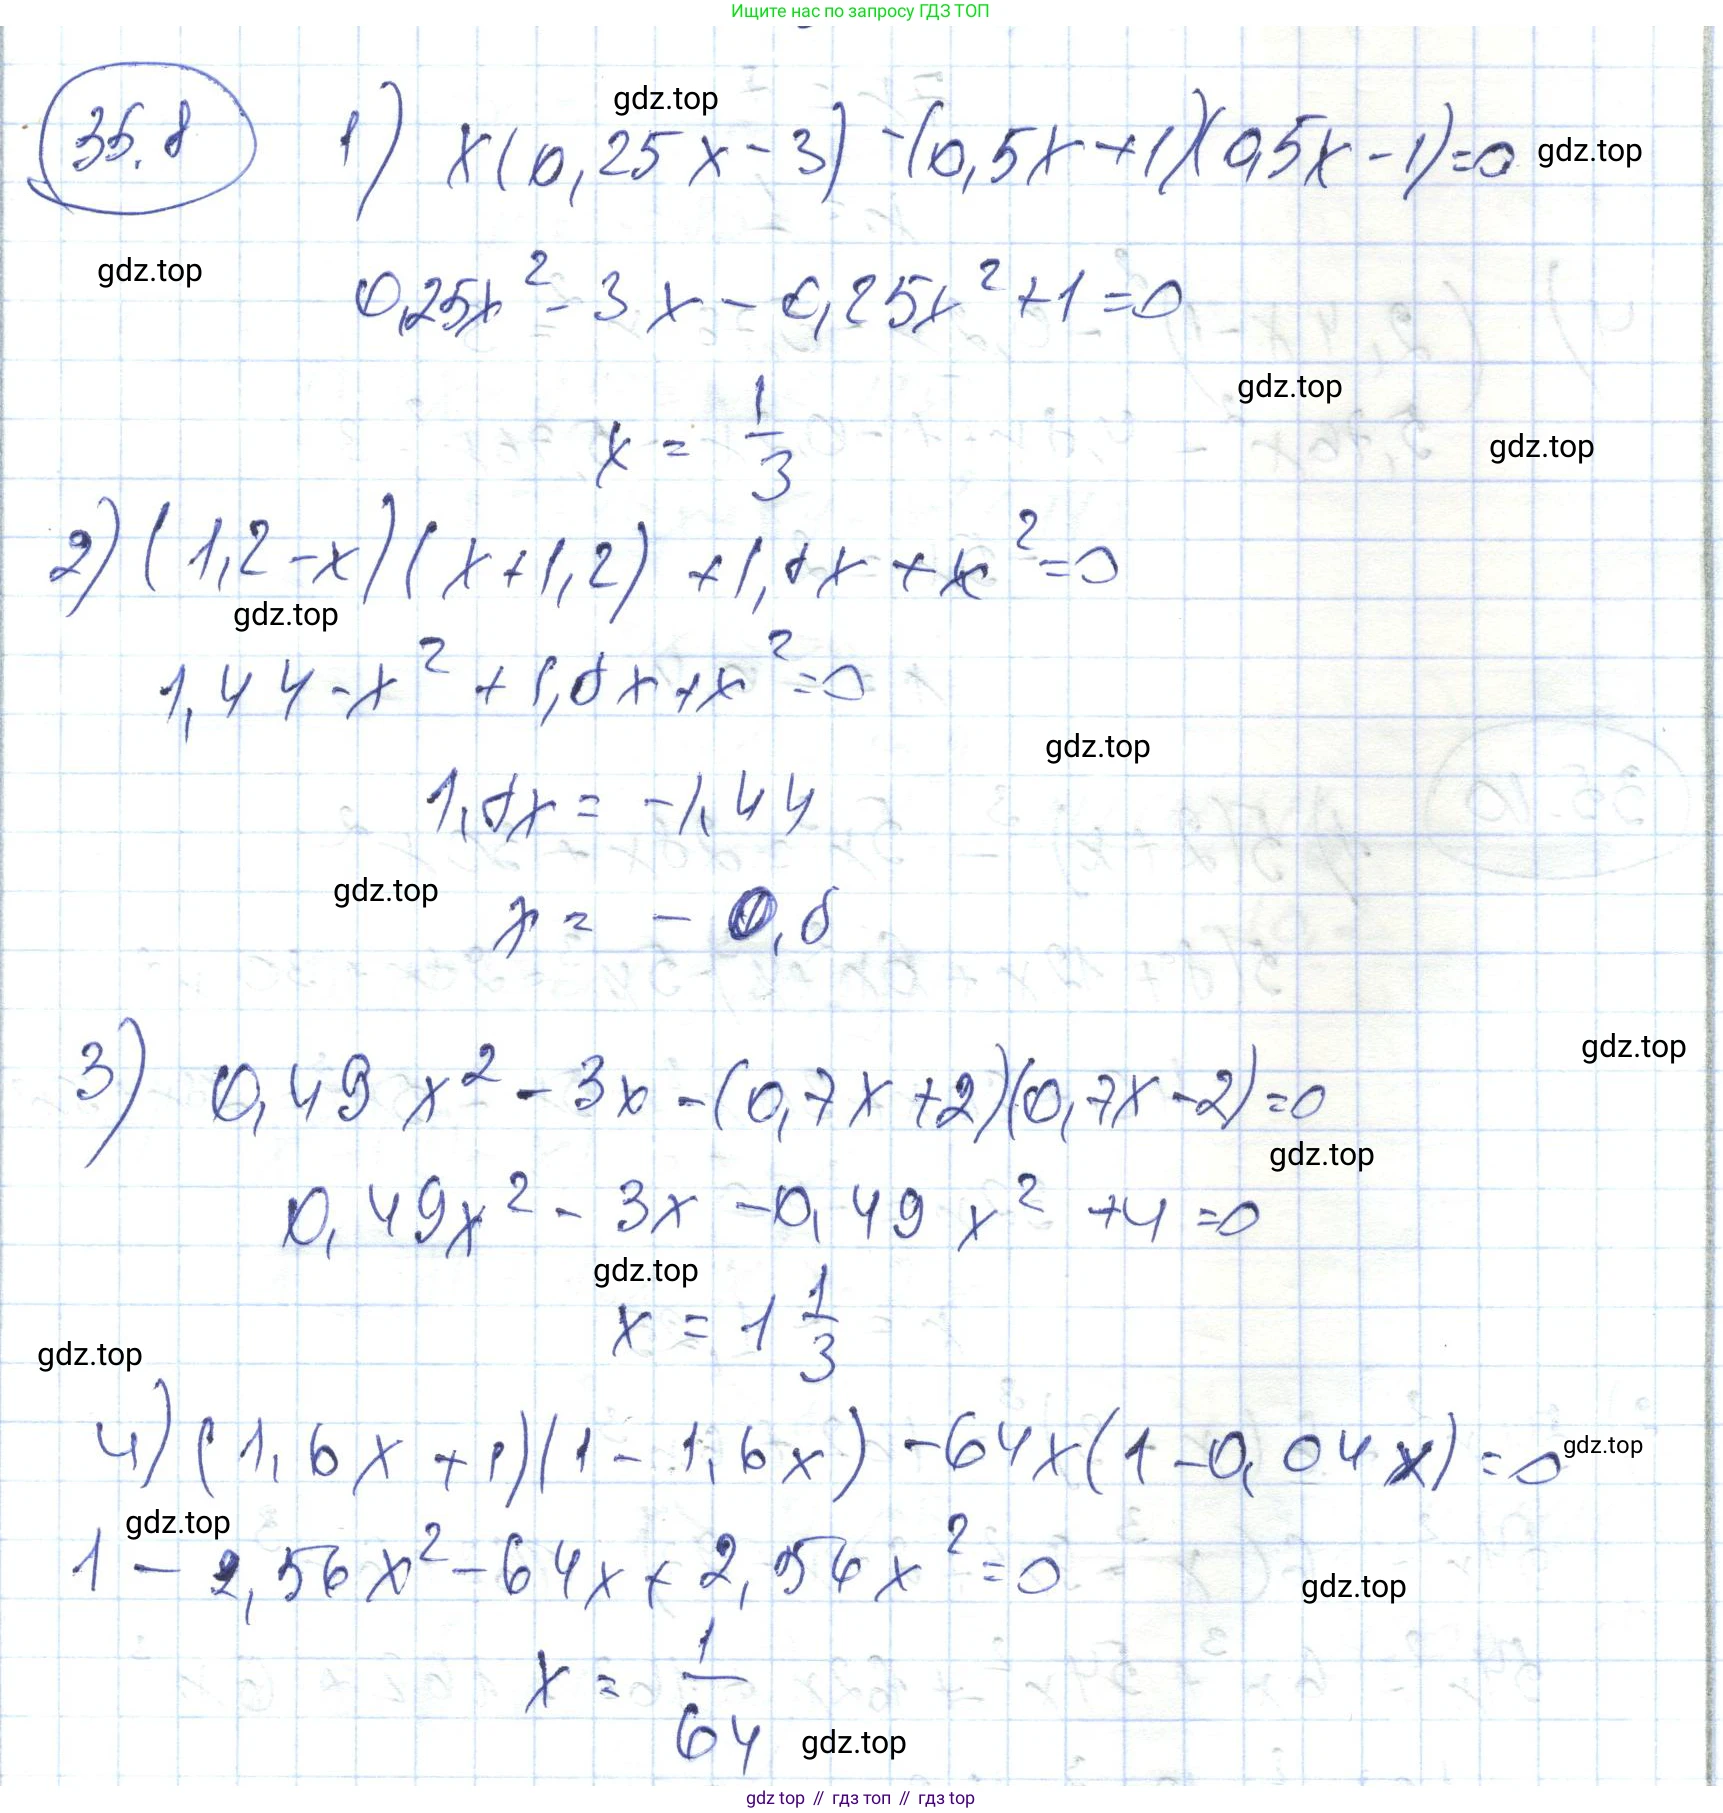 Ищите нас по запросу ГДЗ ТОП
35.8 1) x(0,25x - 3) - (0,5x + 1)(0,5x - 1) = 0
gdz.top
gdz.top
gdz.top
0,25x² - 3x - 0,25x² + 1 = 0
gdz.top
x = 1/3
gdz.top
2) (1,2 - x)(x + 1,2) + 1,8x + x² = 0
gdz.top
1,44 - x² + 1,8x + x² = 0
gdz.top
1,8x = -1,44
gdz.top
x = - 0,8
gdz.top
3) 0,49x² - 3x - (0,7x + 2)(0,7x - 2) = 0
gdz.top
0,49x² - 3x - 0,49x² + 4 = 0
gdz.top
x = 1 1/3
gdz.top
4) (1,6x + 1)(1 - 1,6x) - 64x(1 - 0,04x) = 0
gdz.top
gdz.top
1 - 2,56x² - 64x + 2,56x² = 0
gdz.top
x = 1/64
gdz.top
gdz top // гдз топ // гдз top